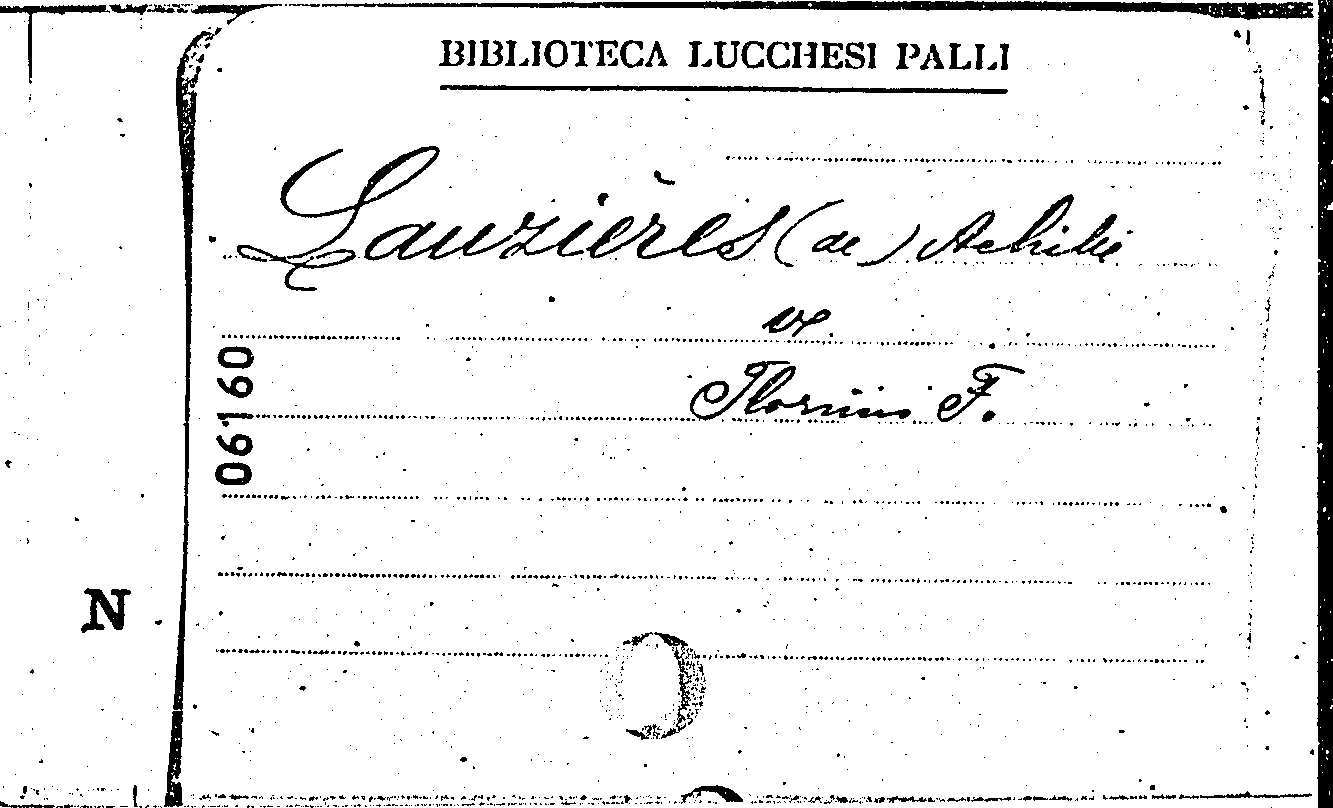 BIBLIOTECA LUCCHESI PALLI
Lauzières (de) Achille
Florimo F.
06160
N